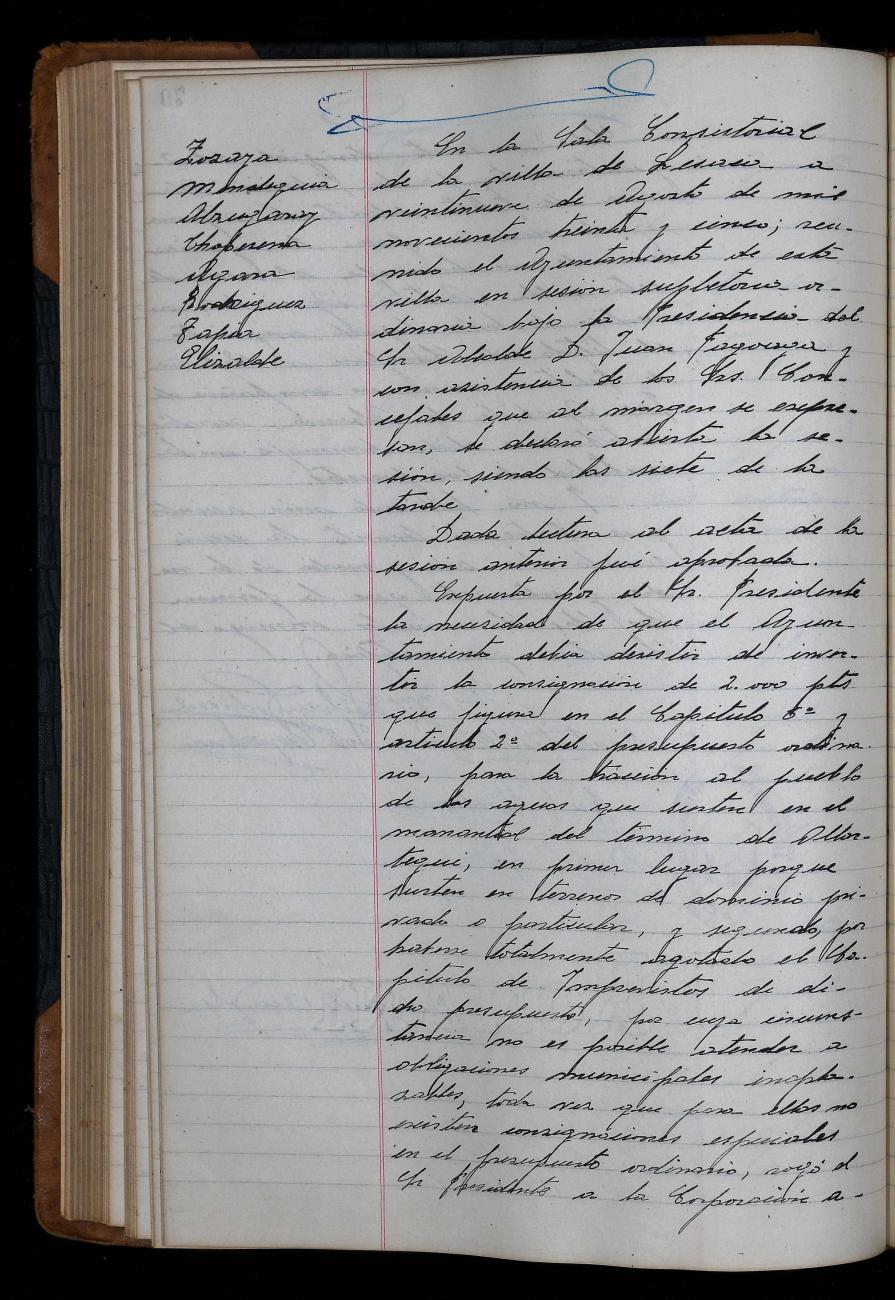 Zozaya
Mendeguia
Alzugaray
Choperena
Agara
Rodriguez
Tapia
Elizalde
En la Sala Consistorial
de la villa de Lesaca a
veintinueve de Agosto de mil
novecientos treinta y cinco; reu-
nido el Ayuntamiento de esta
villa en sesión supletoria or-
dinaria bajo la Presidencia del
Sr Alcalde D. Juan Fagoaga y
con asistencia de los Srs. Con-
cejales que al margen se expre-
san, se declaró abierta la se-
sión, siendo las siete de la
tarde
Dada lectura al acta de la
sesion anterior fué aprobada.
Expuesta por el Sr. Presidente
la necesidad de que el Ayun
tamiento debia desistir de inver-
tir la consignación de 2.000 pts
que figura en el Capitulo 6º y
articulo 2º del presupuesto ordina-
rio, para la traccion al pueblo
de las aguas que surten en el
manantial del término de
en primer lugar porque
surten en terrenos de dominio pri-
vado o particular, y segundo, por
haberse totalmente agotado el Ca-
pitulo de Imprevistos de di-
cho presupuesto, por cuya circuns-
tancia no es posible atender a
obligaciones municipales inapla-
zables, toda vez que para ellas no
existen consignaciones especiales
en el presupuesto ordinario, rogó el
Sr Presidente a la Corporación a-